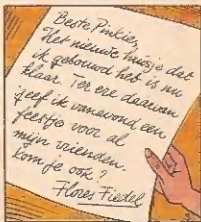 Beste Pinkie,
Het nieuwe huisje dat
ik gebouwd heb is nu
klaar. Ter ere daarvan
geef ik vanavond een
feestje voor al
mijn vrienden.
Kom je ook?
Flores Fiedel